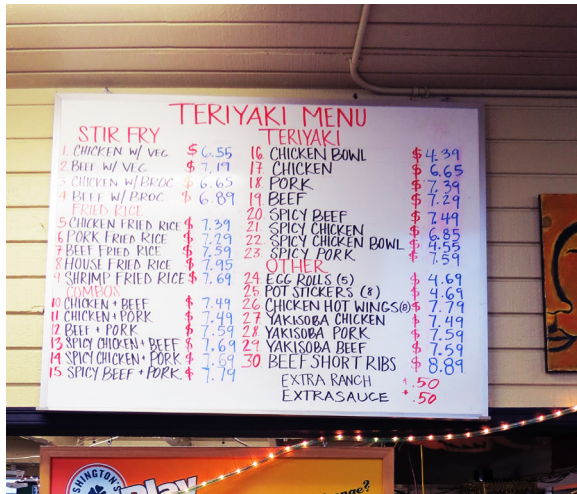 TERIYAKI MENU
STIR FRY
1. CHICKEN W/ VEG $6.55
2 BEEF W/ VEG $7.19
3 CHICKEN W/ BROC $6.65
4 BEEF W/ BROC $6.89
FRIED RICE
5 CHICKEN FRIED RICE $7.39
6 PORK FRIED RICE $7.29
7 BEEF FRIED RICE $7.59
8 HOUSE FRIED RICE $7.95
9 SHRIMP FRIED RICE $7.69
COMBOS
10 CHICKEN + BEEF $7.49
11 CHICKEN + PORK $7.49
12 BEEF + PORK $7.59
13 SPICY CHICKEN + BEEF $7.69
14 SPICY CHICKEN + PORK $7.69
15. SPICY BEEF + PORK $7.79
TERIYAKI
16. CHICKEN BOWL $4.39
17. CHICKEN $6.65
18. PORK $7.39
19. BEEF $7.29
20 SPICY BEEF $7.49
21. SPICY CHICKEN $6.85
22. SPICY CHICKEN BOWL $4.55
23. SPICY PORK $7.59
OTHER
24. EGG ROLLS (5) $4.69
25. POT STICKERS (8) $4.69
26 CHICKEN HOT WINGS $7.79
27 YAKISOBA CHICKEN $7.49
28. YAKISOBA PORK $7.59
29 YAKISOBA BEEF $7.59
30. BEEF SHORT RIBS $8.89
EXTRA RANCH $.50
EXTRA SAUCE $.50
SHINGTON'S
Play
ange?